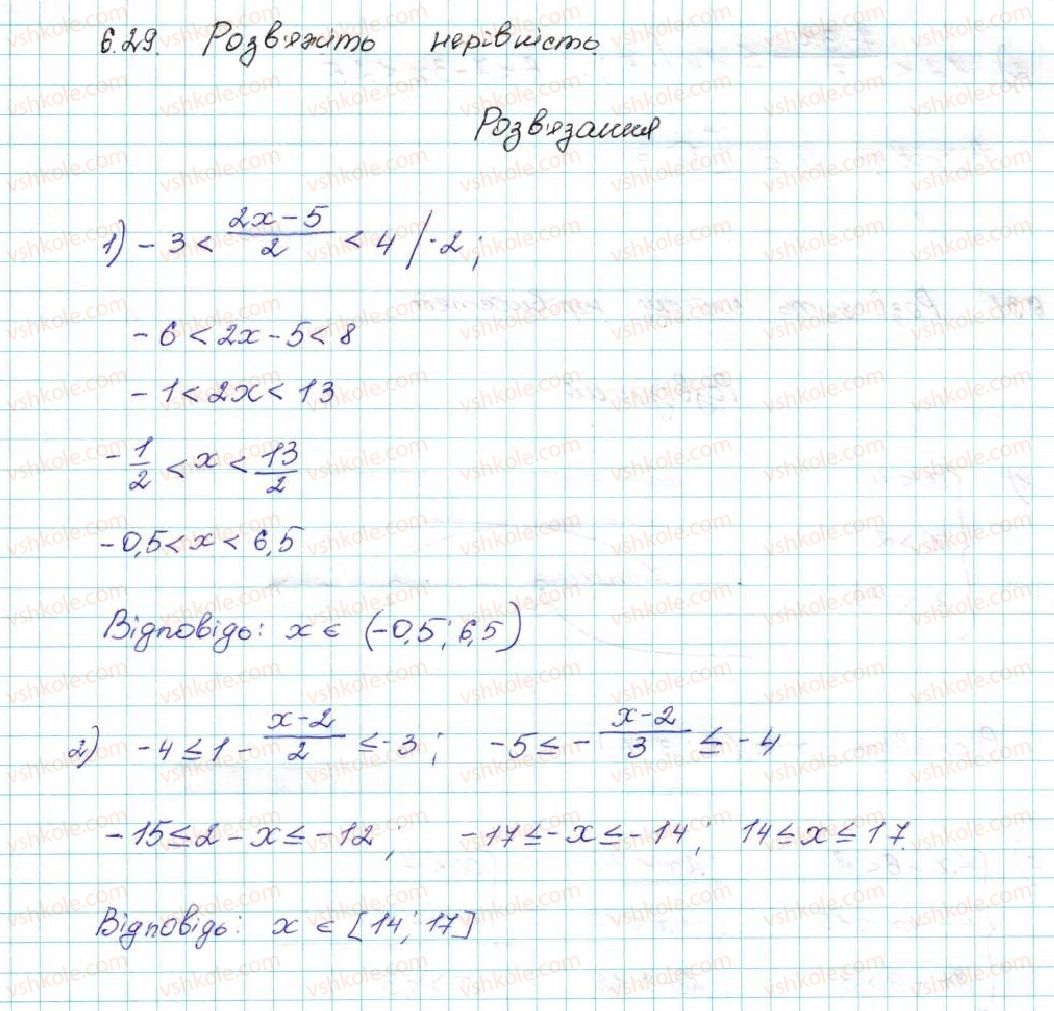 6.29. Розв'яжіть нерівність.
Розв'язання
1) -3 < (2x-5)/2 < 4 /·2;
-6 < 2x-5 < 8
-1 < 2x < 13
-1/2 < x < 13/2
-0,5 < x < 6,5
Відповідь: x ∈ (-0,5; 6,5)
2) -4 ≤ 1 - (x-2)/2 ≤ -3; -5 ≤ - (x-2)/3 ≤ -4
-15 ≤ 2-x ≤ -12; -17 ≤ -x ≤ -14; 14 ≤ x ≤ 17.
Відповідь: x ∈ [14; 17]